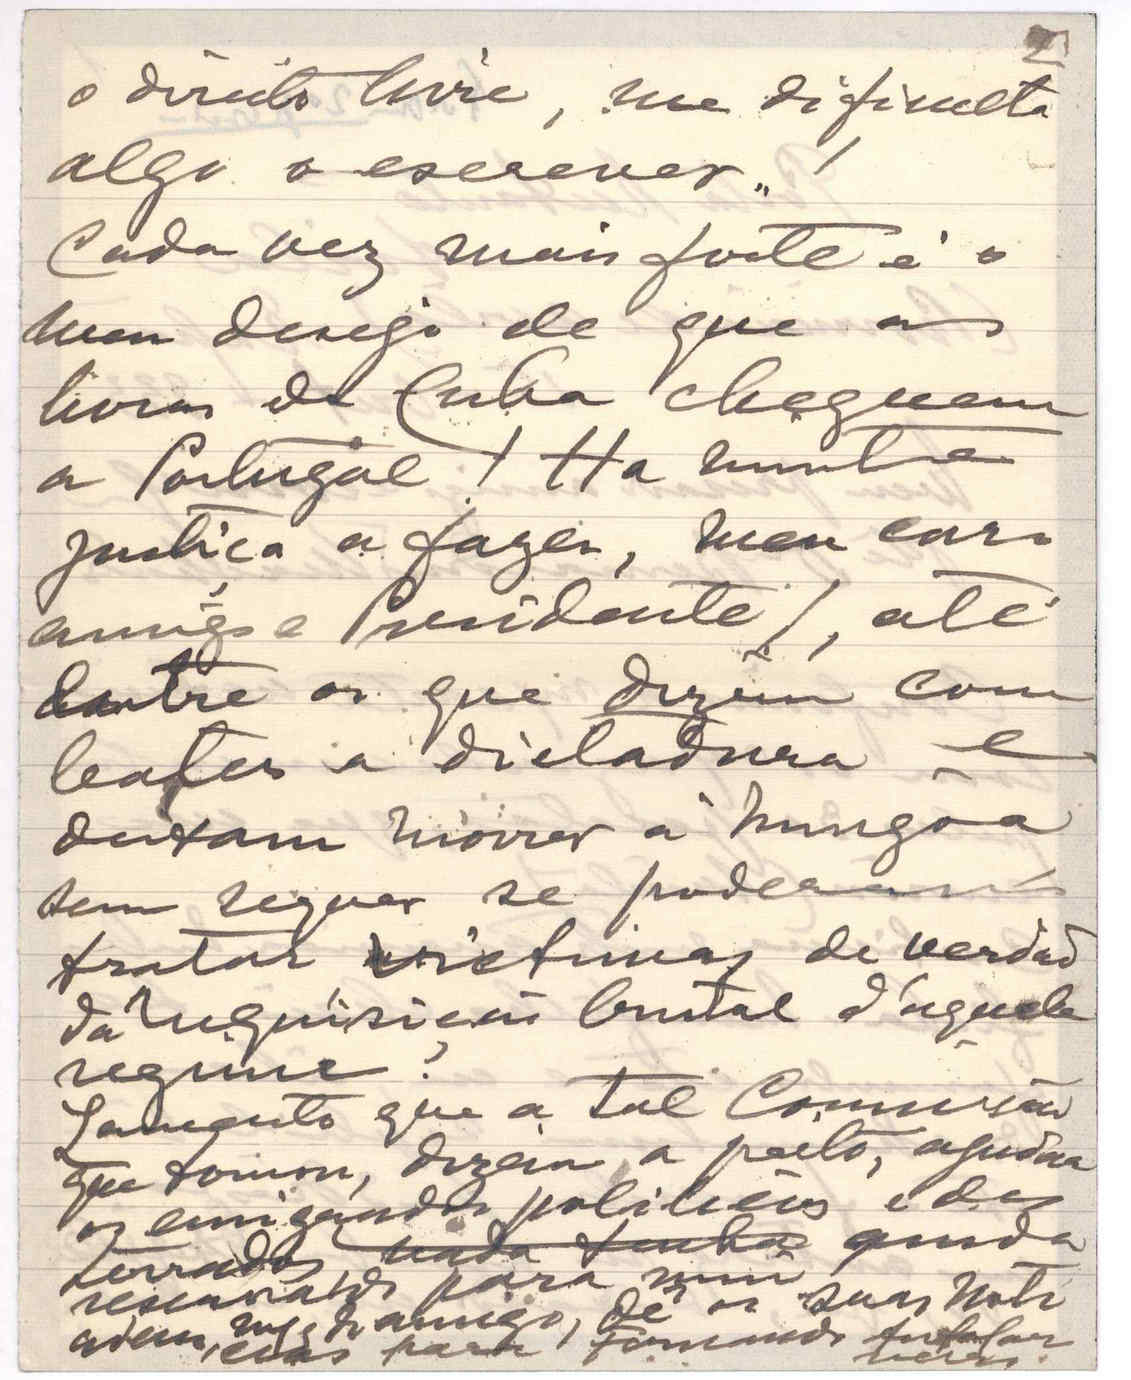 2
o direito livre, me dificulta
algo o escrever!
Cada vez mais forte é o
meu desejo de que as
livras de Cuba cheguem
a Portugal! Ha muita
justica a fazer, meu caro
amigo e Presidente!, até
dentre os que dizem com
bater a dictadura e
deixam morrer à mingôa
sem sequer se poderem
tratar victimas de verdad
da requisição brutal d'aquele
regime!
Lamento que a tal Comissão
que tomou, dizem, a peito, ajudar
os emigrados politicos e des
terrados, nada tenha ainda
para mim
amigo, dê as suas noti
cias para Fernando